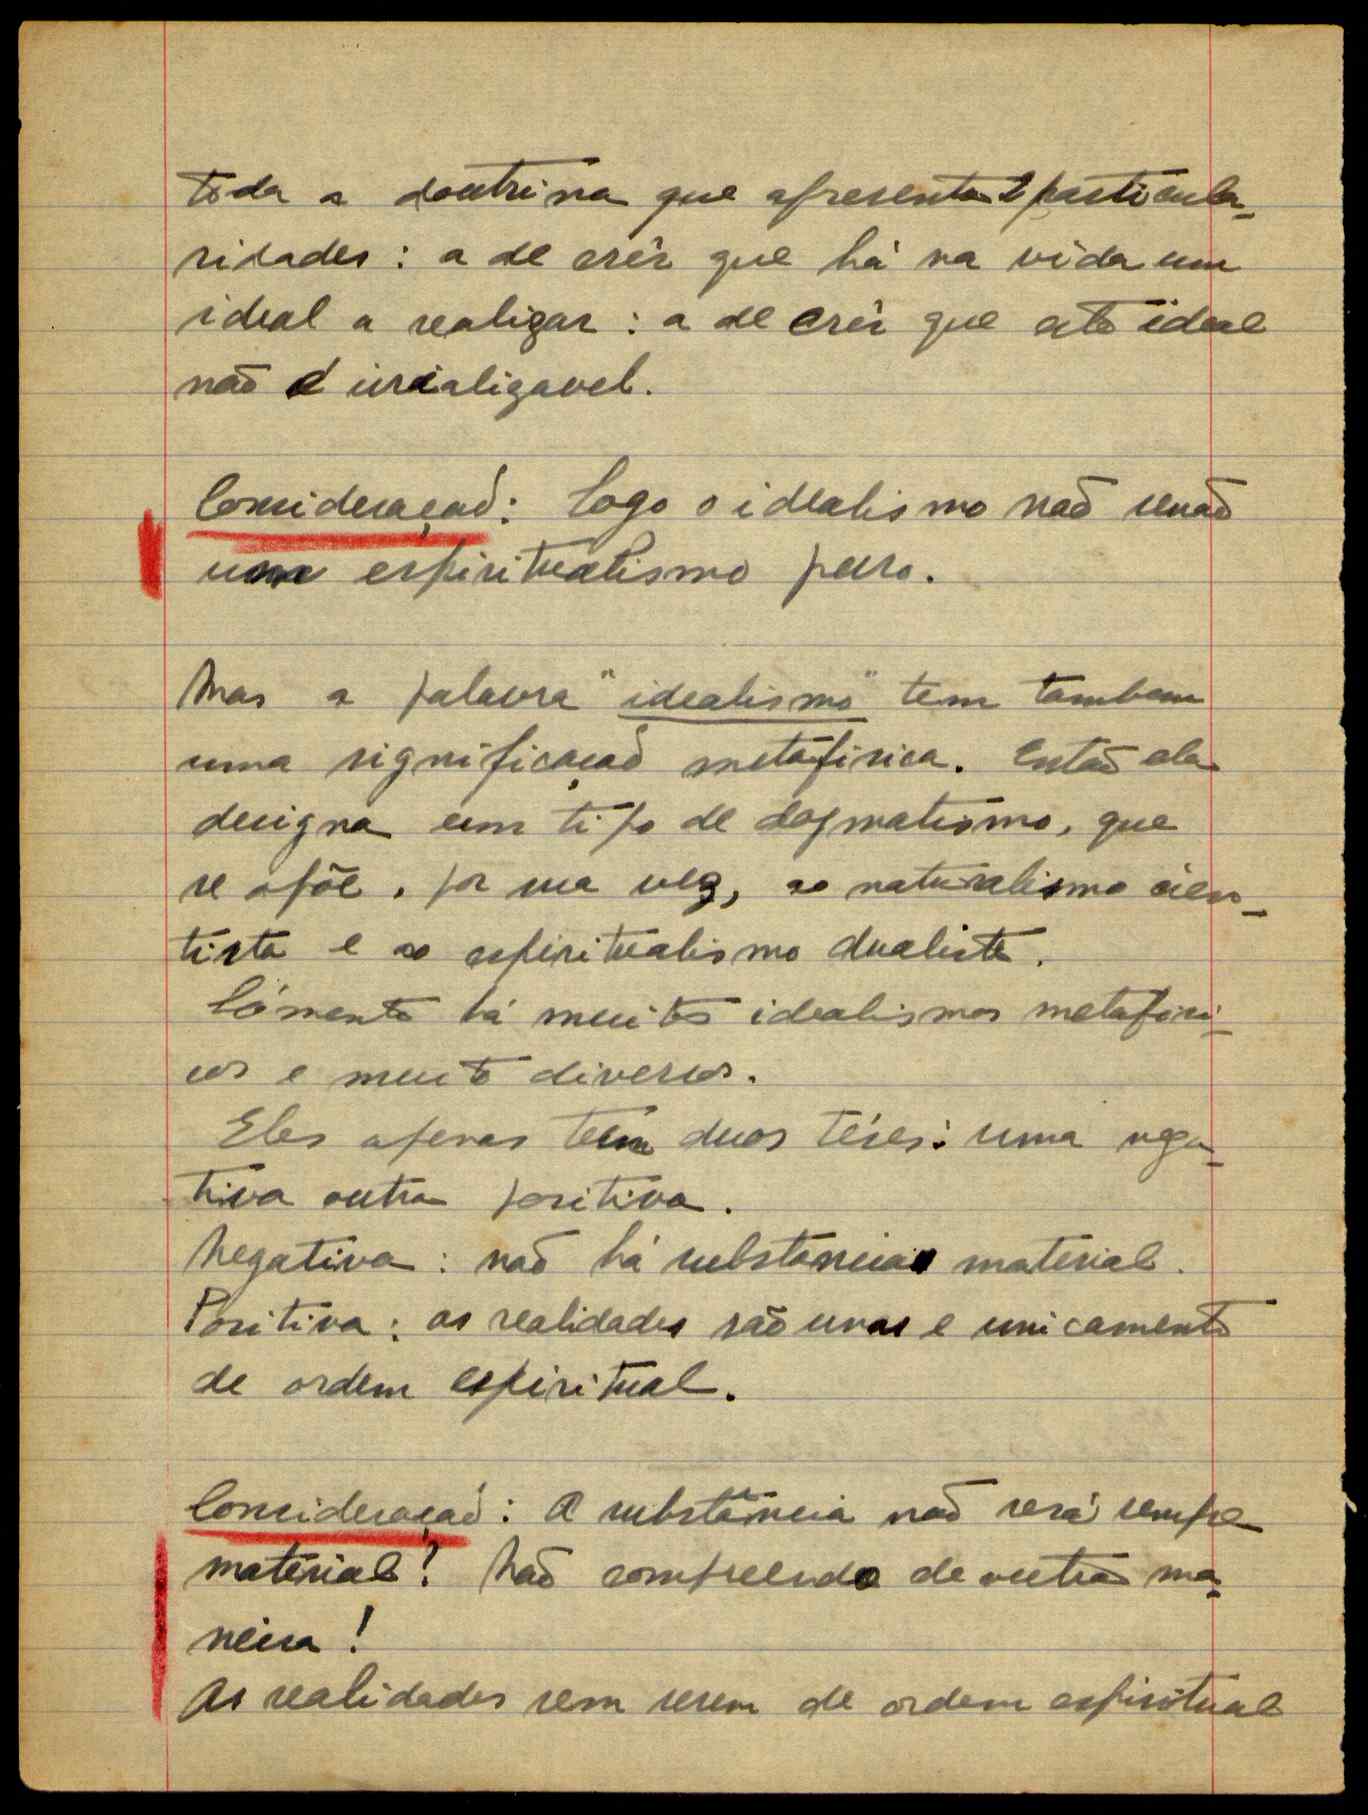 toda a doutrina que apresenta 2 particula-
ridades: a de crêr que há na vida um
ideal a realizar: a de crêr que este ideal
não é irrealizavel.
Consideração: Logo o idealismo não senão
um espiritualismo puro.
Mas a palavra "idealismo" tem tambem
uma significação metafisica. Então ela
designa um tipo de dogmatismo, que
se opõe, por sua vez, ao naturalismo cien-
tista e ao espiritualismo dualista.
Sómente há muitos idealismos metafisi-
cos e muito diversos.
Eles apenas teem duas téses: uma nega-
tiva outra positiva.
Negativa: não há substancia material.
Positiva: as realidades são unas e unicamente
de ordem espiritual.
Consideração: A substância não será sempre
material? Não compreendo de outra ma-
neira!
As realidades sem serem de ordem espiritual